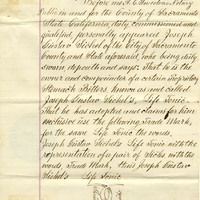 Before me A. C.
Public in and for the County of Sacramento
State California, duly commissioned and
qualified personally appeared Joseph
Gustav Sichel of the City of Sacramento
County and State aforesaid, who being duly
sworn, deposeth and says: That he is the
owner and compounder of a certain Proprietary
Stomach Bitters known as and called
Joseph Gustav Sichel's, Life Tonic.
That he has adopted and claims for his
exclusive use the following Trade Mark,
for the same Life Tonic the words,
Joseph Gustav Sichel's Life Tonic with the
representation of a pair of with the
words, Trade Mark, thus Joseph Gustav
Sichel's Life Tonic